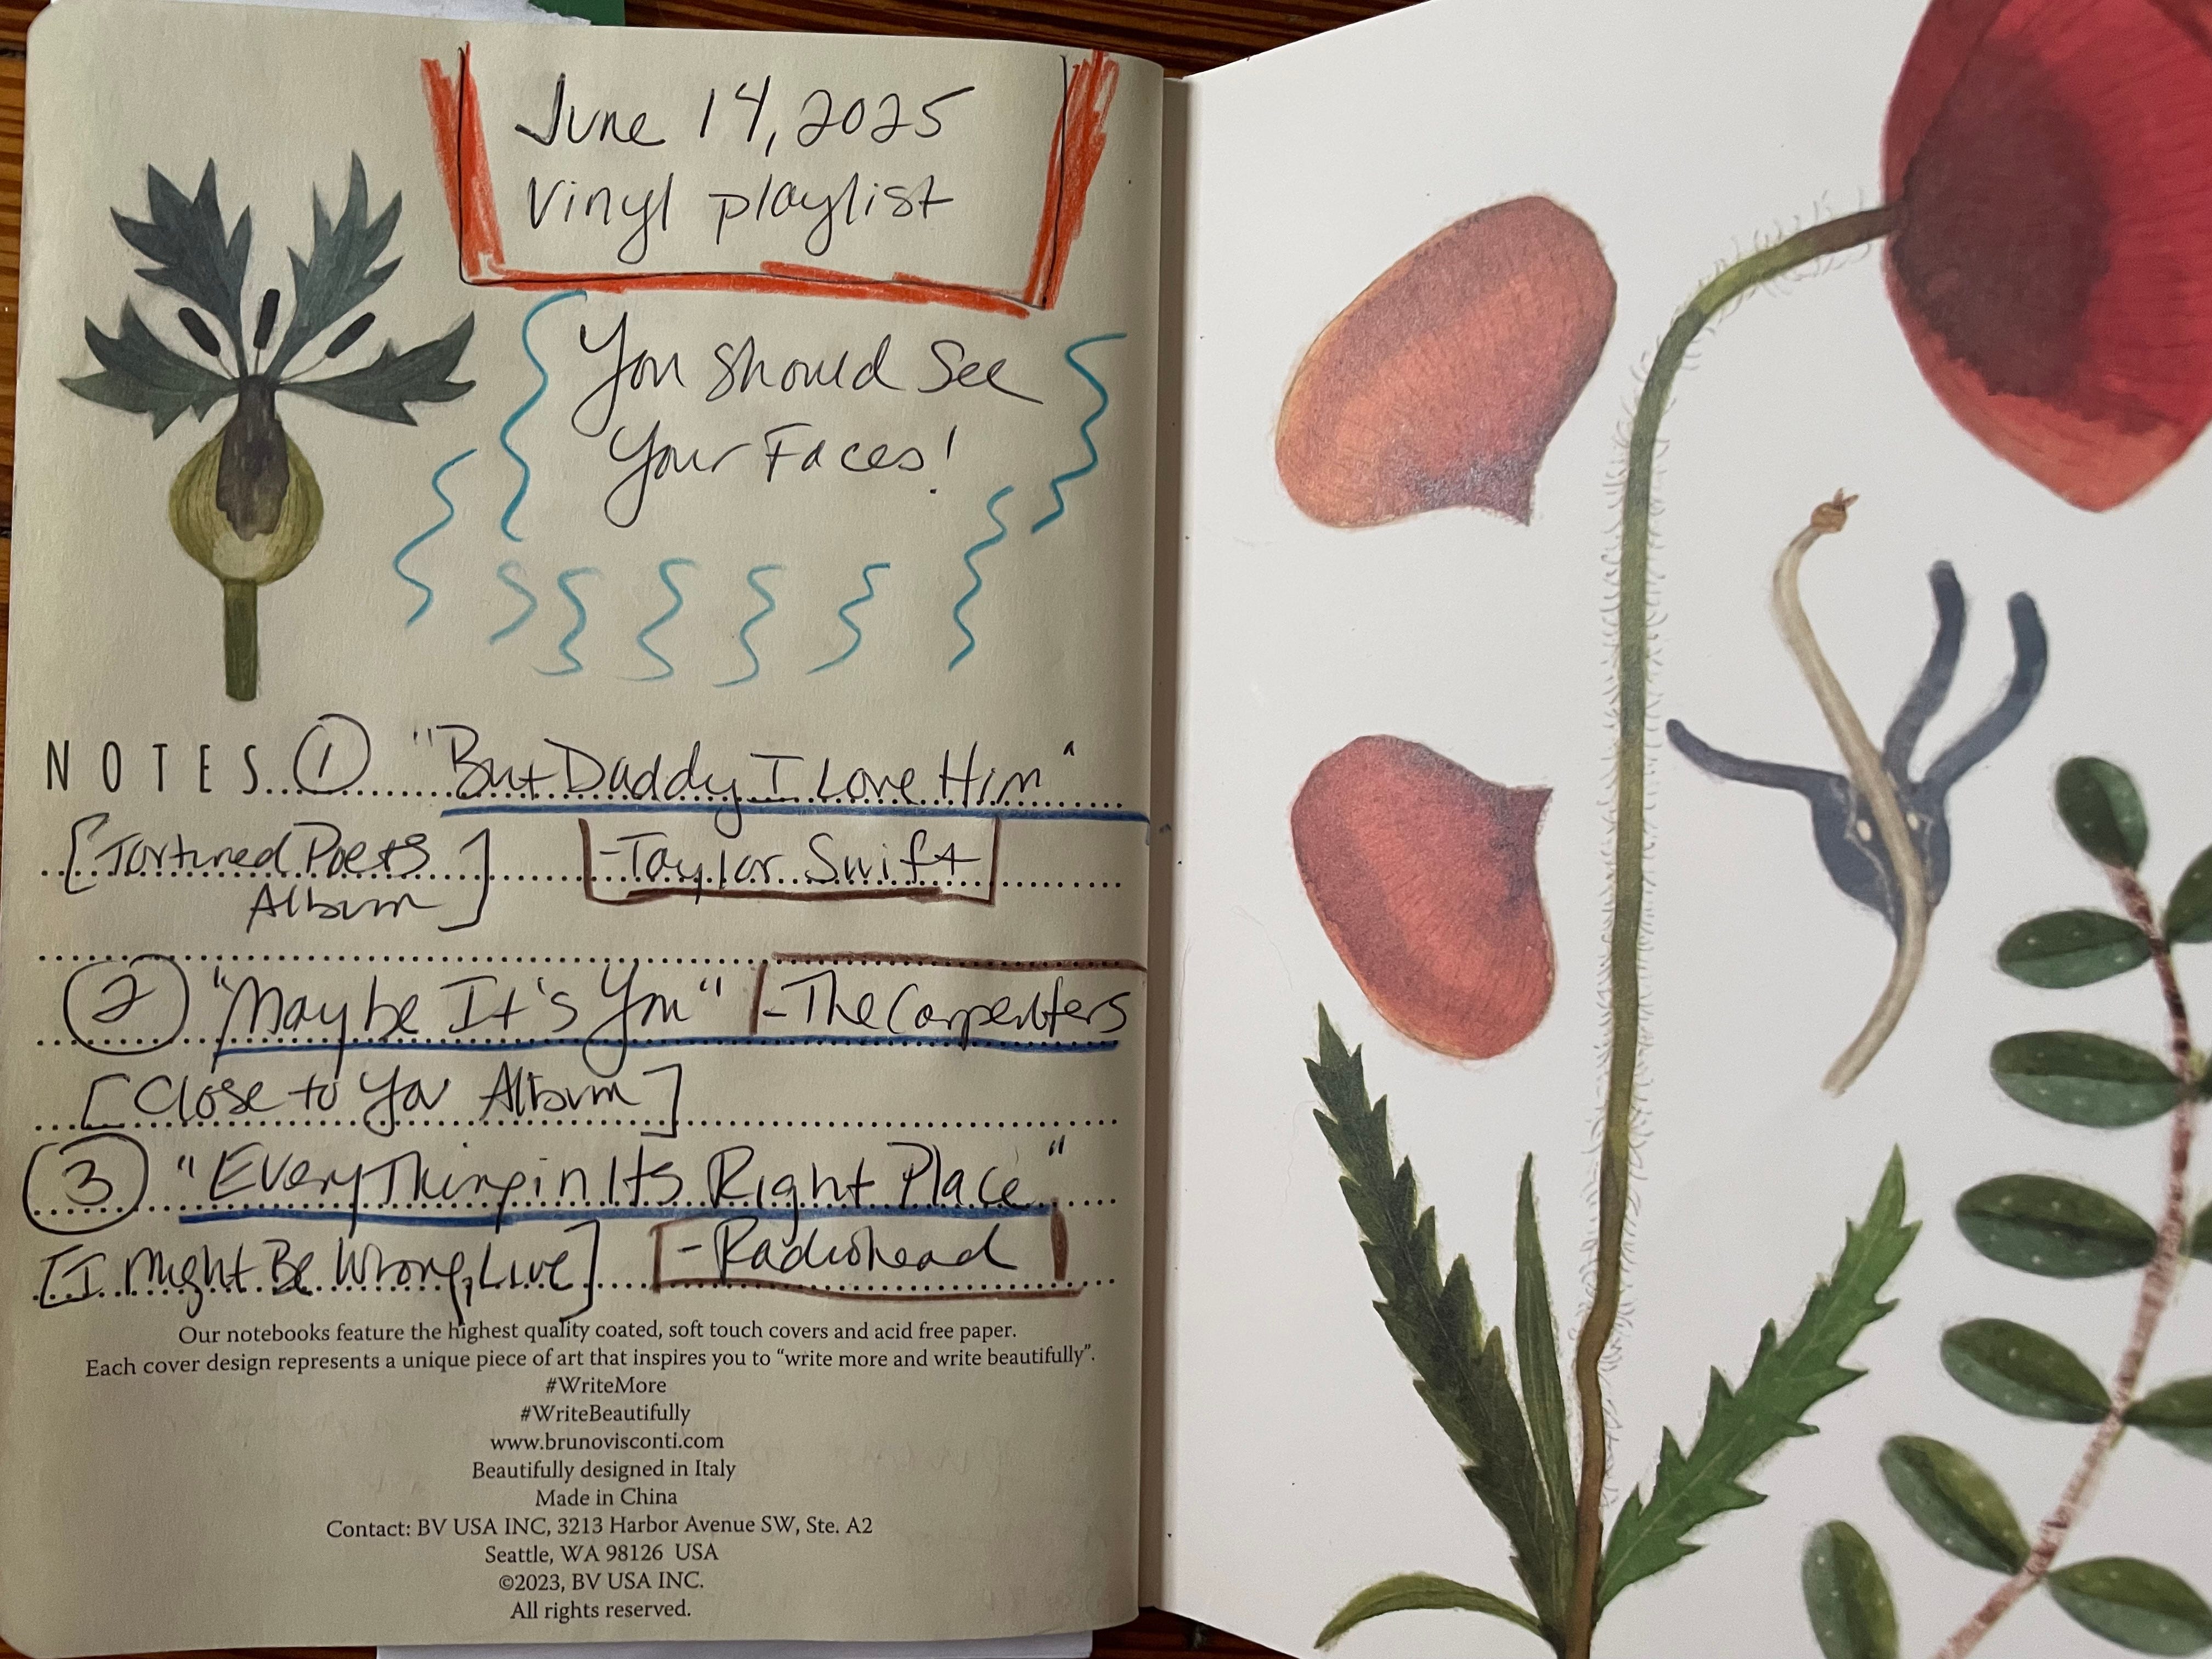 June 14, 2025
Vinyl playlist
You Should See
Your Faces!
NOTES ① "But Daddy I Love Him"
[Tortured Poets Album] -Taylor Swift
② "Maybe It's You" -The Carpenters
[Close to You Album]
③ "EveryThing in Its Right Place"
[I Might Be Wrong, Live] -Radiohead
Our notebooks feature the highest quality coated, soft touch covers and acid free paper.
Each cover design represents a unique piece of art that inspires you to “write more and write beautifully”.
#WriteMore
#WriteBeautifully
www.brunovisconti.com
Beautifully designed in Italy
Made in China
Contact: BV USA INC, 3213 Harbor Avenue SW, Ste. A2
Seattle, WA 98126 USA
©2023, BV USA INC.
All rights reserved.